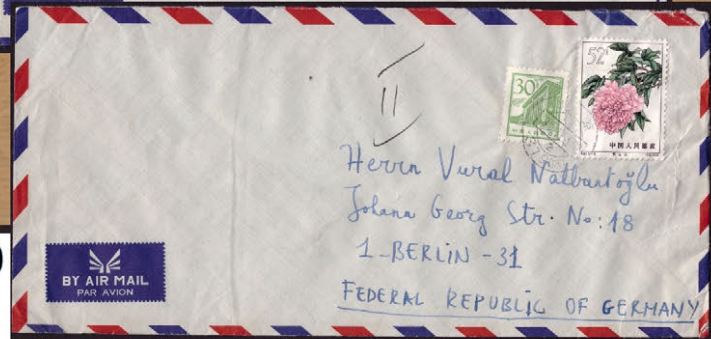 II
52
30
中国人民邮政
中国人民邮政
Herrn Vural Nalbantoğlu
Johana Georg Str. No:18
1-BERLiN-31
FEDERAL REPUBLIC OF GERMANY
BY AIR MAIL
PAR AVION